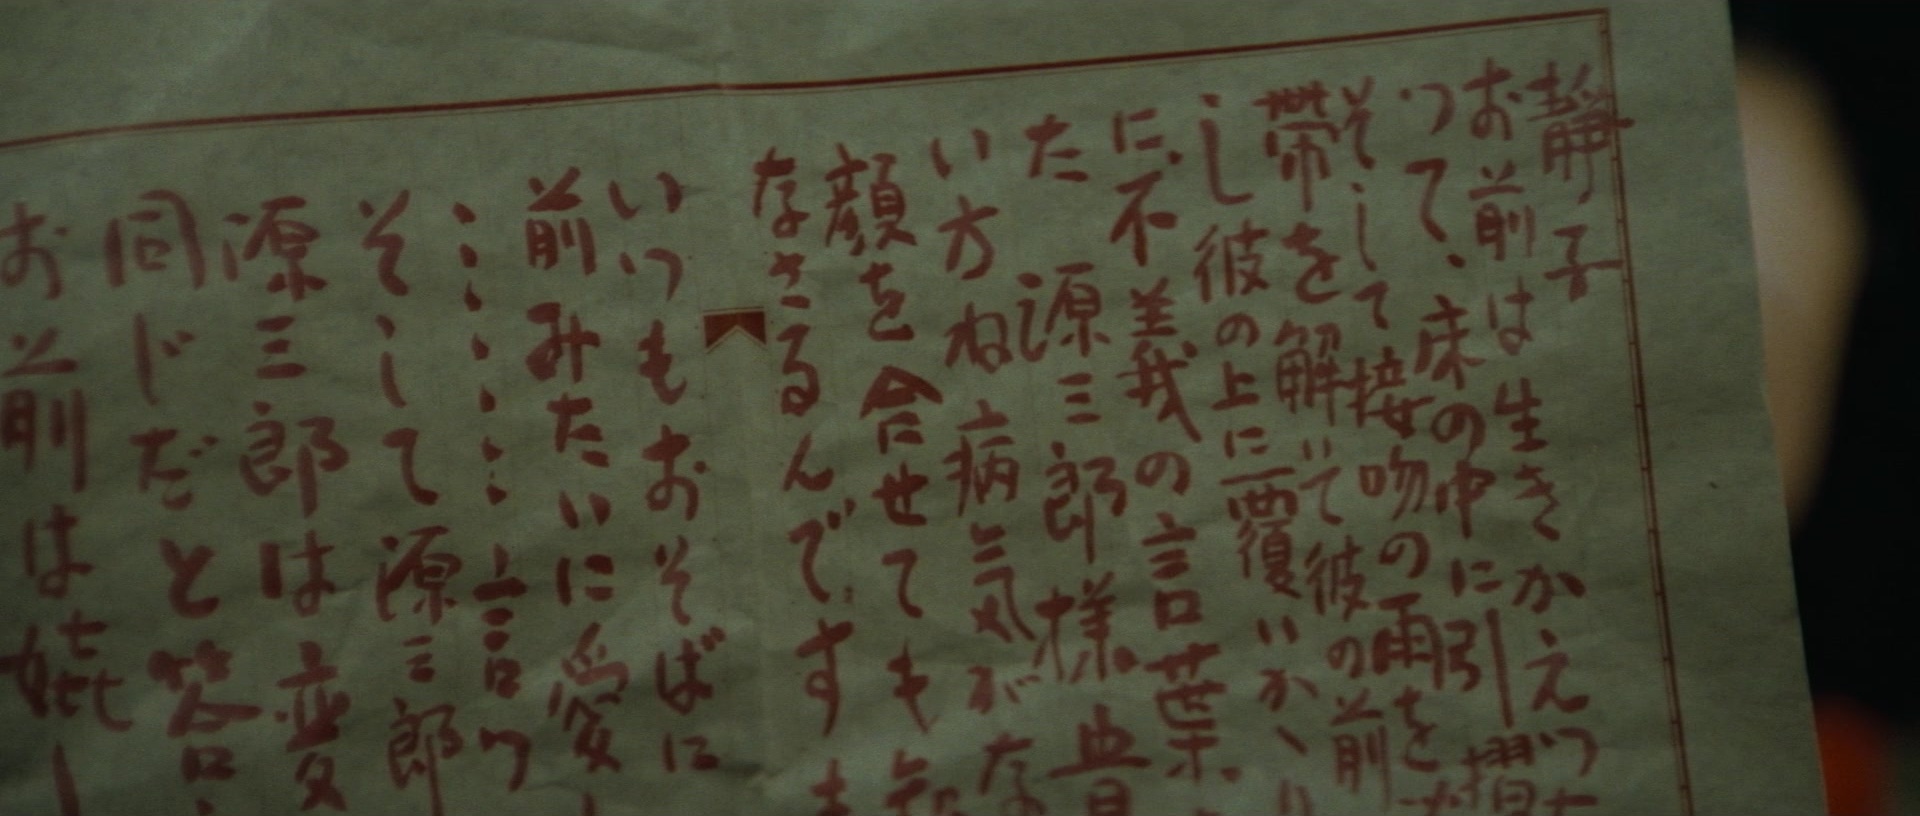 静子
お前は生きかえつた
つて、床の中に引摺
そして接吻の雨を
帯を解いて彼の前
し彼の上に覆いかゝり
に、不義の言葉
た 源三郎様 貴
い方ね 病気がな
顔を合せても知
なさるんです
いつもおそばに
前みたいに愛し
……言つ
そして源三郎
源三郎は変
同じだと答
お前は嫉し